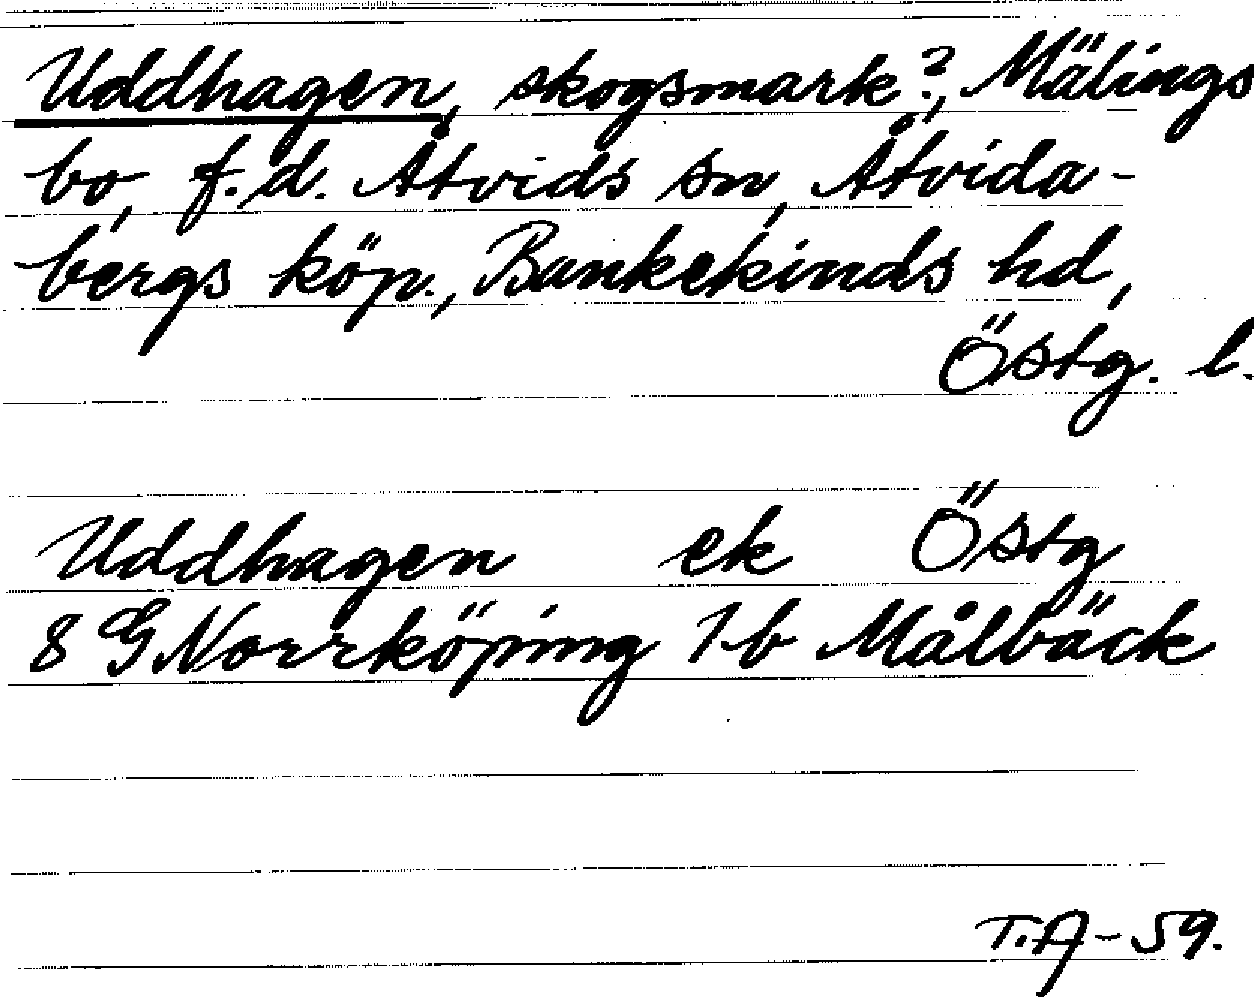 Uddhagen, skogsmark?, Mälings
bo, f.d. Åtvids sn, Åtvida-
bergs köp., Bankekinds hd,
Östg. l.
Uddhagen ek Östg
8 G Norrköping 1 b Målbäck
T.A-59.